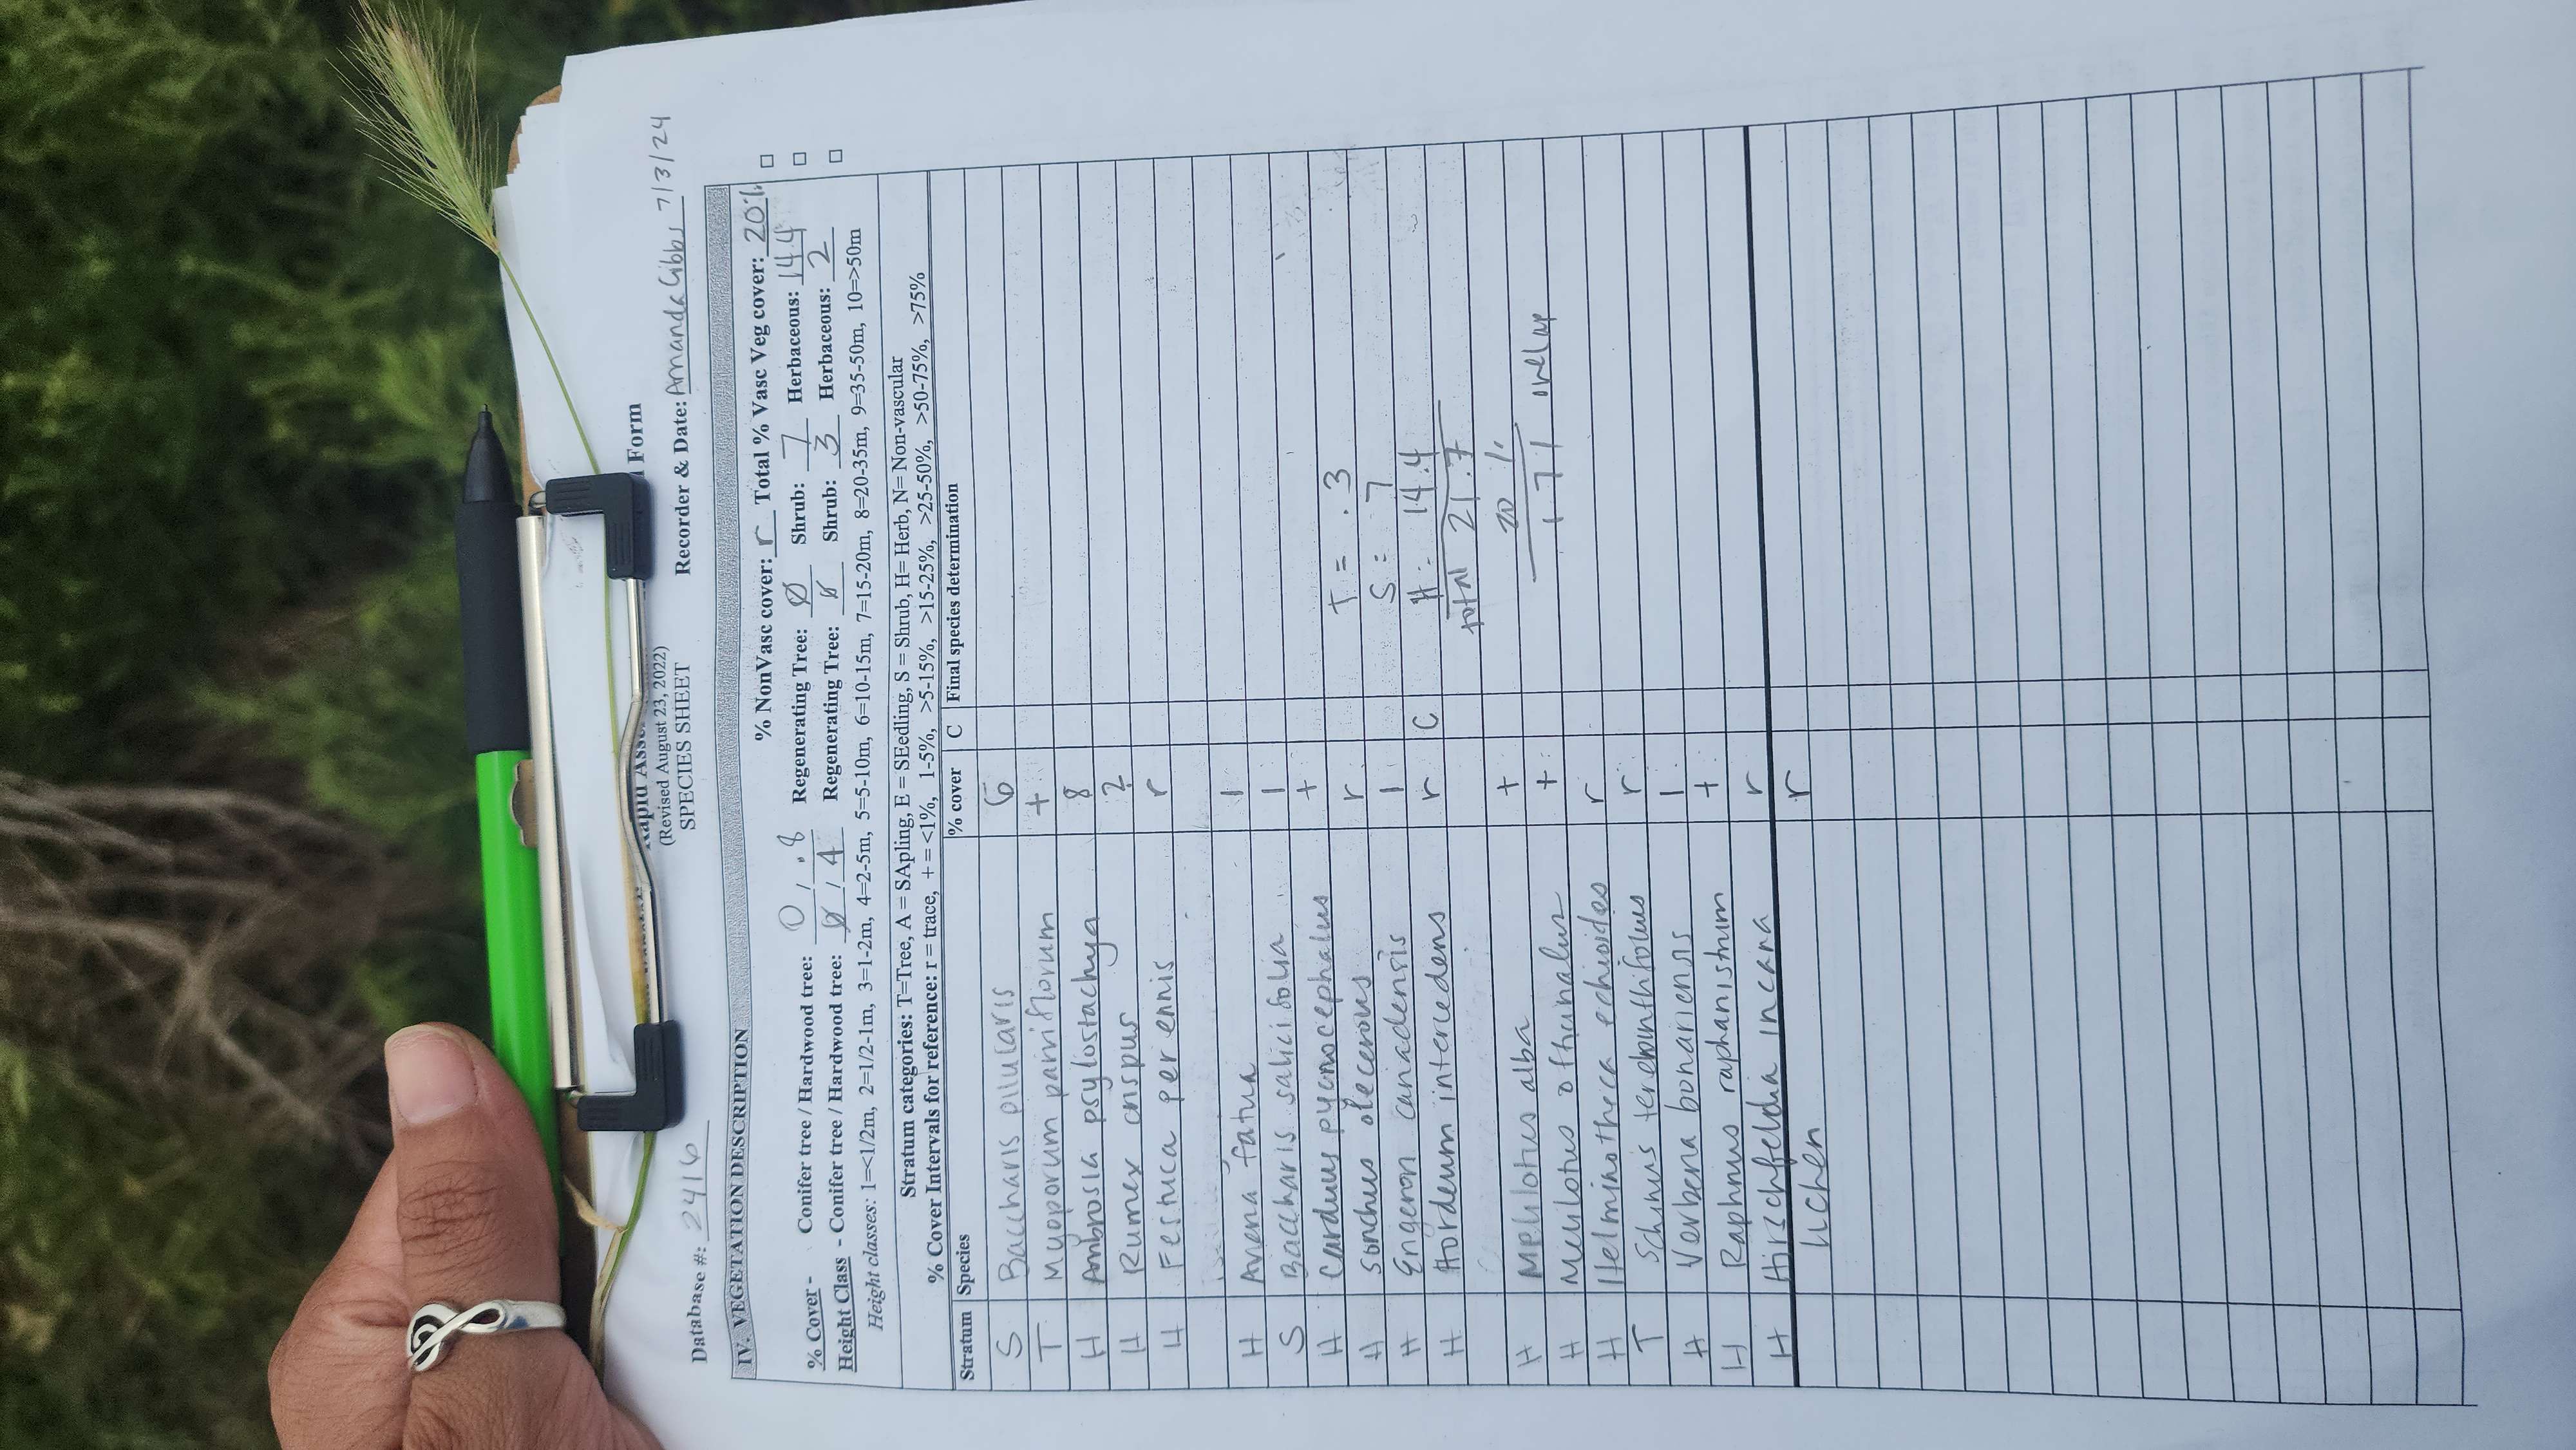 Rapid Asse Form
(Revised August 23, 2022)
SPECIES SHEET
Database #: 2416 Recorder & Date: Amanda Gibbs 7/3/24
IV. VEGETATION DESCRIPTION
% NonVasc cover: r Total % Vasc Veg cover: 20%
% Cover - Conifer tree / Hardwood tree: 0 / .8 Regenerating Tree: Ø Shrub: 7 Herbaceous: 14.4
Height Class - Conifer tree / Hardwood tree: Ø / 4 Regenerating Tree: Ø Shrub: 3 Herbaceous: 2
Height classes: 1=<1/2m, 2=1/2-1m, 3=1-2m, 4=2-5m, 5=5-10m, 6=10-15m, 7=15-20m, 8=20-35m, 9=35-50m, 10=>50m
Stratum categories: T=Tree, A = SApling, E = SEedling, S = Shrub, H= Herb, N= Non-vascular
% Cover Intervals for reference: r = trace, + = <1%, 1-5%, >5-15%, >15-25%, >25-50%, >50-75%, >75%
Stratum Species % cover C Final species determination
S Baccharis pilularis 6
T Myoporum parviflorum +
H Ambrosia psylostachya 8
H Rumex crispus 2
H Festuca perennis r
H Avena fatua 1
S Baccharis salicifolia 1
H Carduus pycnocephalus +
H Sonchus olecerous r T = .3
H Erigeron canadensis 1 S = 7
H Hordeum intercedens r C H = 14.4
total 21.7
H Melilotus alba + 20%
H Melilotus officinalus + 1.7% overlap
H Helminotheca echioides r
T Schinus terebinthifolius r
H Verbena bonariensis 1
H Raphnus raphanistrum +
H Hirschfeldia incana r
lichen r